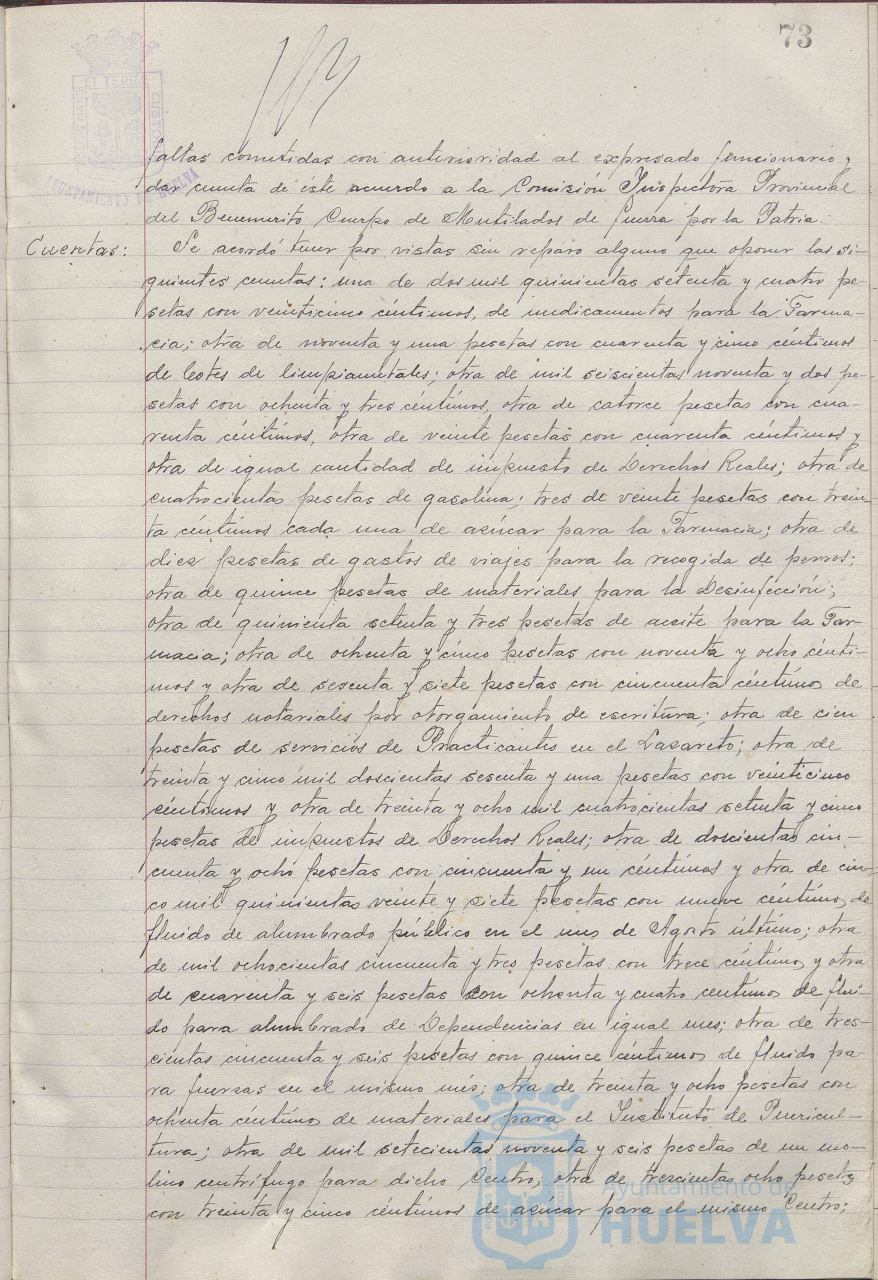 73
faltas cometidas con anterioridad al expresado funcionario y
dar cuenta de éste acuerdo a la Comisión Inspectora Provincial
del Benemérito Cuerpo de Mutilados de Guerra por la Patria.
Cuentas: Se acordó tener por vistas sin reparo alguno que oponer las si-
guientes cuentas: una de dos mil quinientas setenta y cuatro pe-
setas con veinticinco céntimos, de medicamentos para la Farma-
cia; otra de noventa y una pesetas con cuarenta y cinco céntimos
de botes de limpiametales; otra de mil seiscientas noventa y dos pe-
setas con ochenta y tres céntimos, otra de catorce pesetas con cua-
renta céntimos, otra de veinte pesetas con cuarenta céntimos y
otra de igual cantidad de impuesto de Derechos Reales; otra de
cuatrocientas pesetas de gasolina; tres de veinte pesetas con trein-
ta céntimos cada una de azúcar para la Farmacia; otra de
diez pesetas de gastos de viajes para la recogida de perros;
otra de quince pesetas de materiales para la Desinfección;
otra de quinienta setenta y tres pesetas de aceite para la Far-
macia; otra de ochenta y cinco pesetas con noventa y ocho cénti-
mos y otra de sesenta y siete pesetas con cincuenta céntimos de
derechos notariales por otorgamiento de escritura; otra de cien
pesetas de servicios de Practicantes en el Lazareto; otra de
treinta y cinco mil doscientas sesenta y una pesetas con veinticinco
céntimos y otra de treinta y ocho mil cuatrocientas setenta y cinco
pesetas de impuestos de Derechos Reales; otra de doscientas cin-
cuenta y ocho pesetas con cincuenta y un céntimos y otra de cin-
co mil quinientas veinte y siete pesetas con nueve céntimos de
fluido de alumbrado público en el mes de Agosto último; otra
de mil ochocientas cincuenta y tres pesetas con trece céntimos y otra
de cuarenta y seis pesetas con ochenta y cuatro centimos de flui-
do para alumbrado de Dependencias en igual mes; otra de tres-
cientas cincuenta y seis pesetas con quince céntimos de fluido pa-
ra fuerzas en el mismo més; otra de treinta y ocho pesetas con
ochenta céntimos de materiales para el Instituto de Puericul-
tura; otra de mil setecientas noventa y seis pesetas de un mo-
lino centrífugo para dicho Centro; otra de trescientas ocho pesetas
con treinta y cinco céntimos de azúcar para el mismo Centro;
AYUNTAMIENTO DE HUELVA
Ayuntamiento de
HUELVA